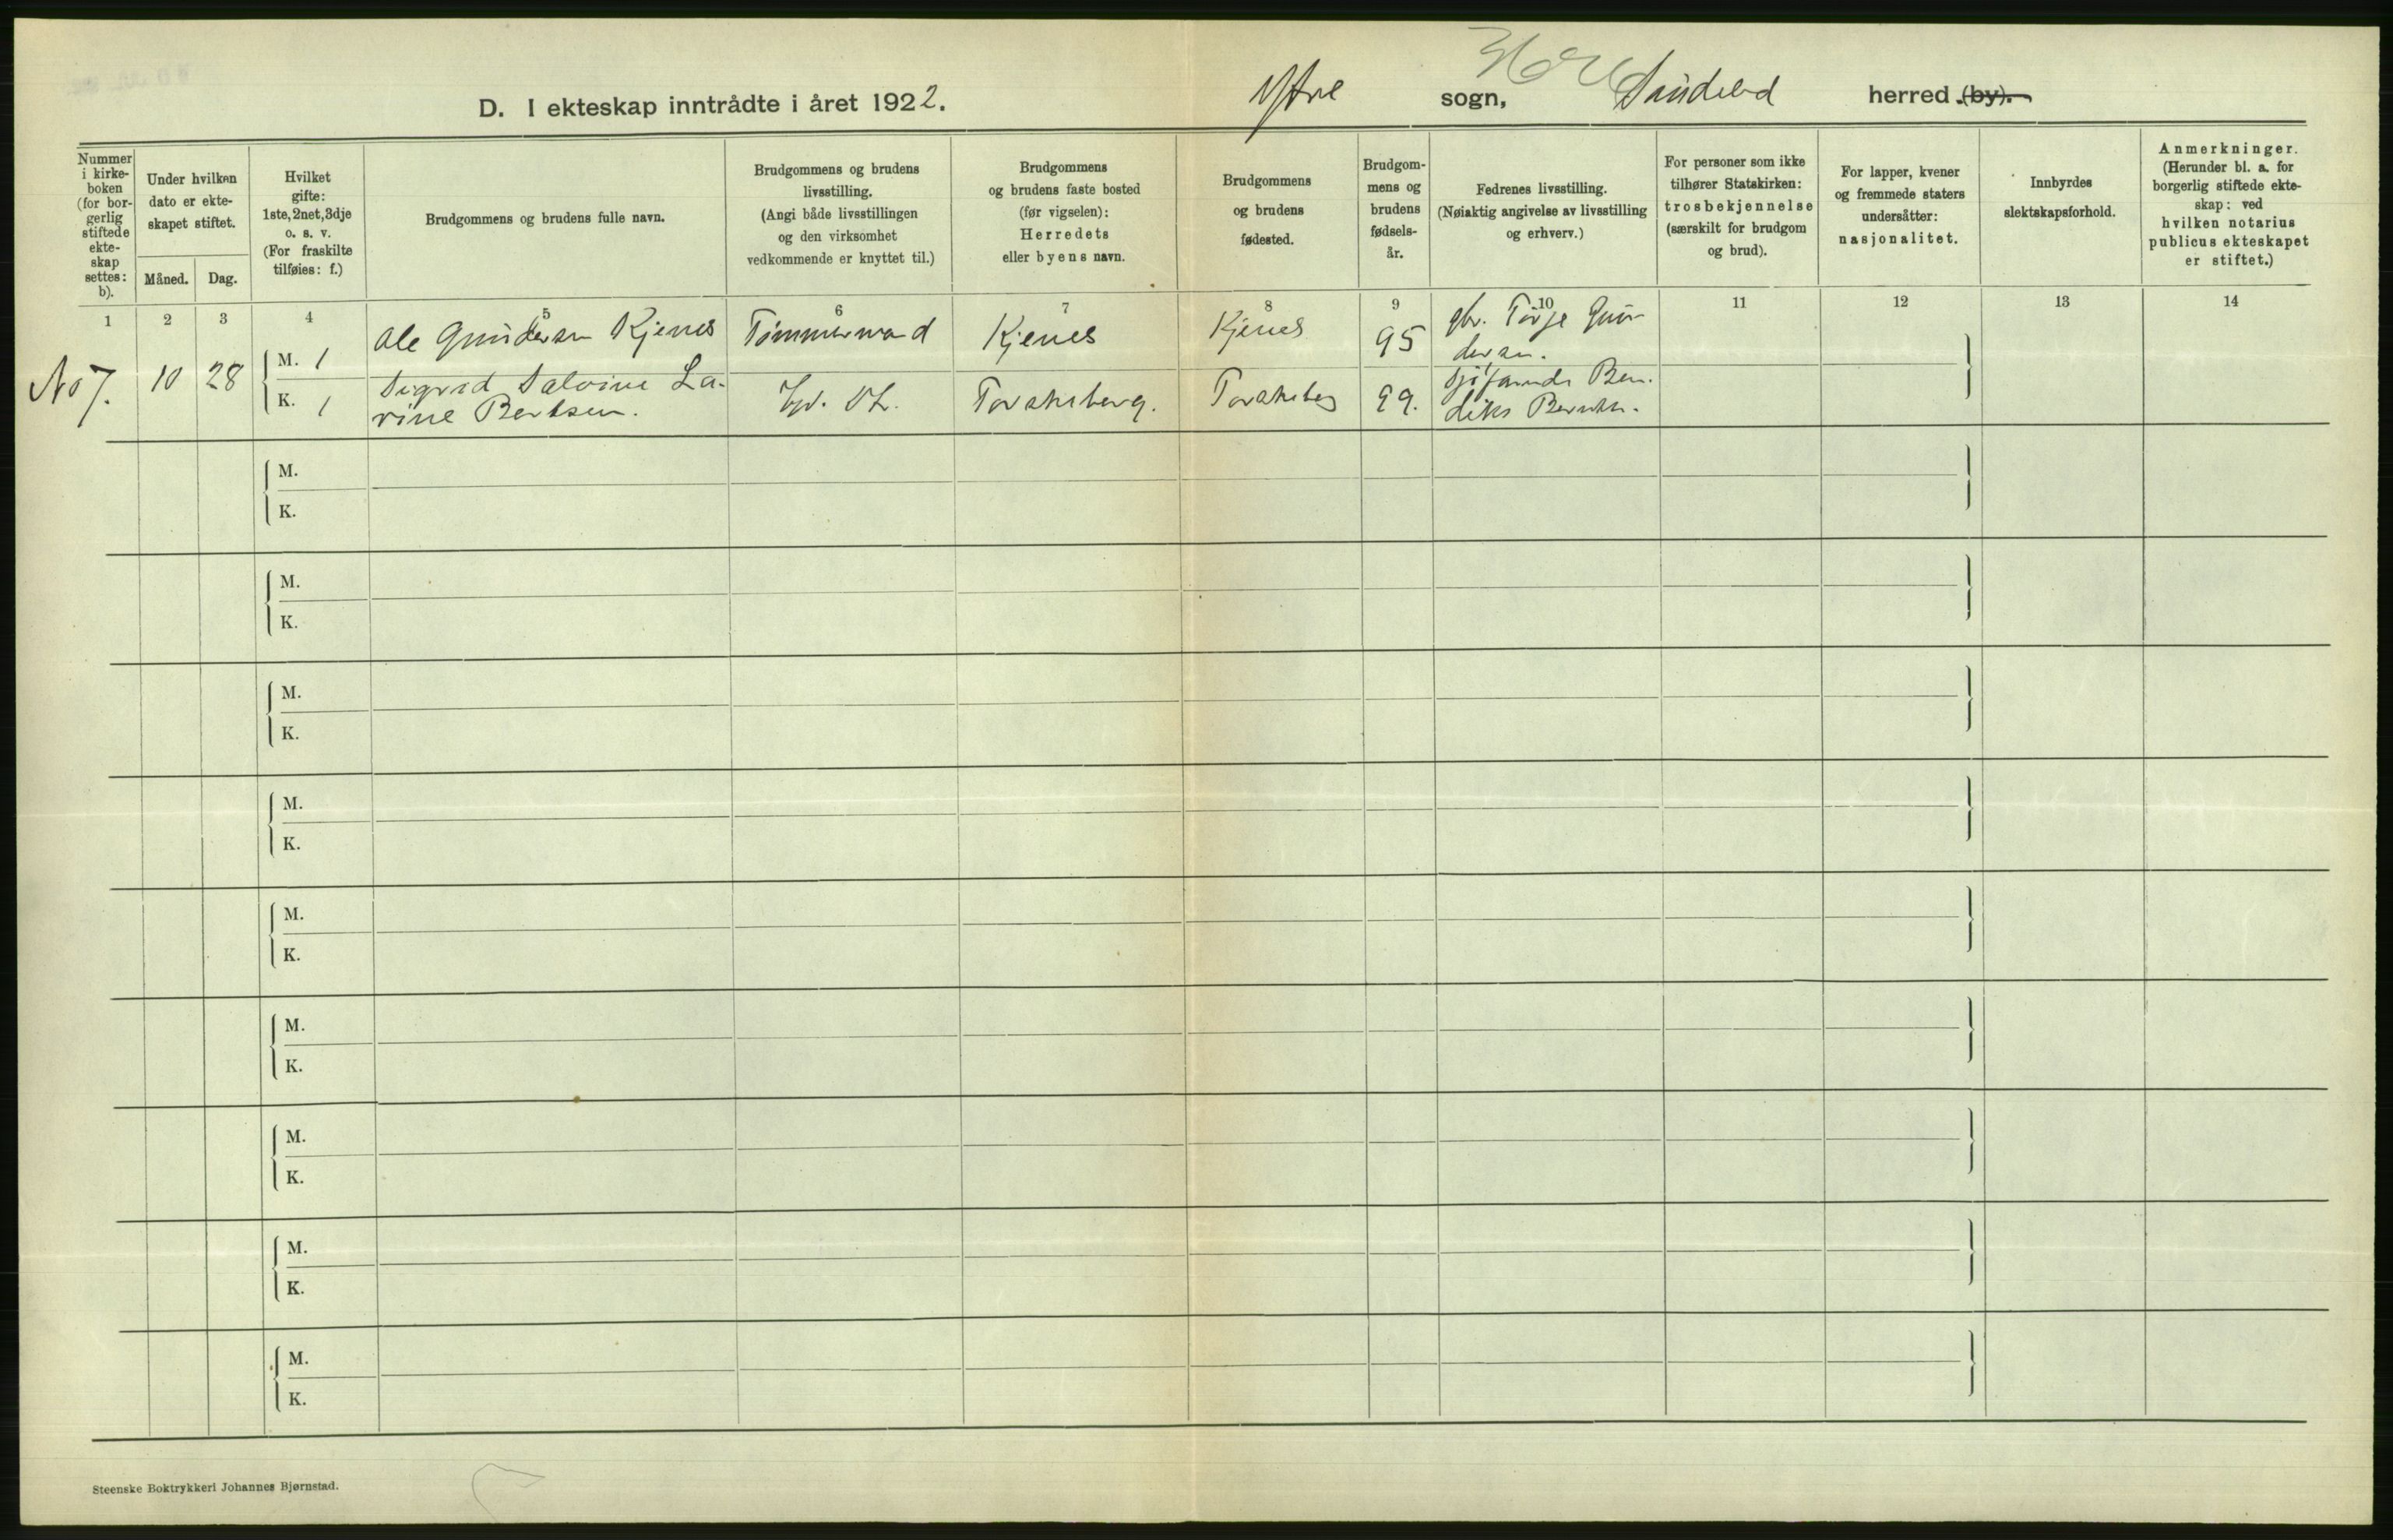 D. I ekteskap inntrådte i året 1922. Ytre sogn, Søndeled herred (by).
Nummer
i kirke-
boken
(for bor-
gerlig
stiftede
ekte-
skap
settes:
b).
Under hvilken
dato er ekte-
skapet stiftet.
Måned. Dag.
Hvilket
gifte:
1ste, 2net, 3dje
o. s. v.
(For fraskilte
tilføies: f.)
Brudgommens og brudens fulle navn.
Brudgommens og brudens
livsstilling.
(Angi både livsstillingen
og den virksomhet
vedkommende er knyttet til.)
Brudgommens
og brudens faste bosted
(før vigselen):
Herredets
eller byens navn.
Brudgommens
og brudens
fødested.
Brudgom-
mens og
brudens
fødsels-
år.
Fedrenes livsstilling.
(Nøiaktig angivelse av livsstilling
og erhverv.)
For personer som ikke
tilhører Statskirken:
trosbekjennelse
(særskilt for brudgom
og brud).
For lapper, kvener
og fremmede staters
undersåtter:
nasjonalitet.
Innbyrdes
slektskapsforhold.
Anmerkninger.
(Herunder bl. a. for
borgerlig stiftede ekte-
skap: ved
hvilken notarius
publicus ekteskapet
er stiftet.)
1 2 3 4 5 6 7 8 9 10 11 12 13 14
No 7. 10 28
M. 1
Ole Gundersen Kjenes
Tømmermand
Kjenes
Kjenes
95
gbr. Tørje Gun-
dersen.
K. 1
Sigrid Salvine La-
rine Bentsen.
Torskeberg.
Torskeberg
99.
Ben-
diks
M.
K.
M.
K.
M.
K.
M.
K.
M.
K.
M.
K.
M.
K.
M.
K.
M.
K.
Steenske Boktrykkeri Johannes Bjørnstad.